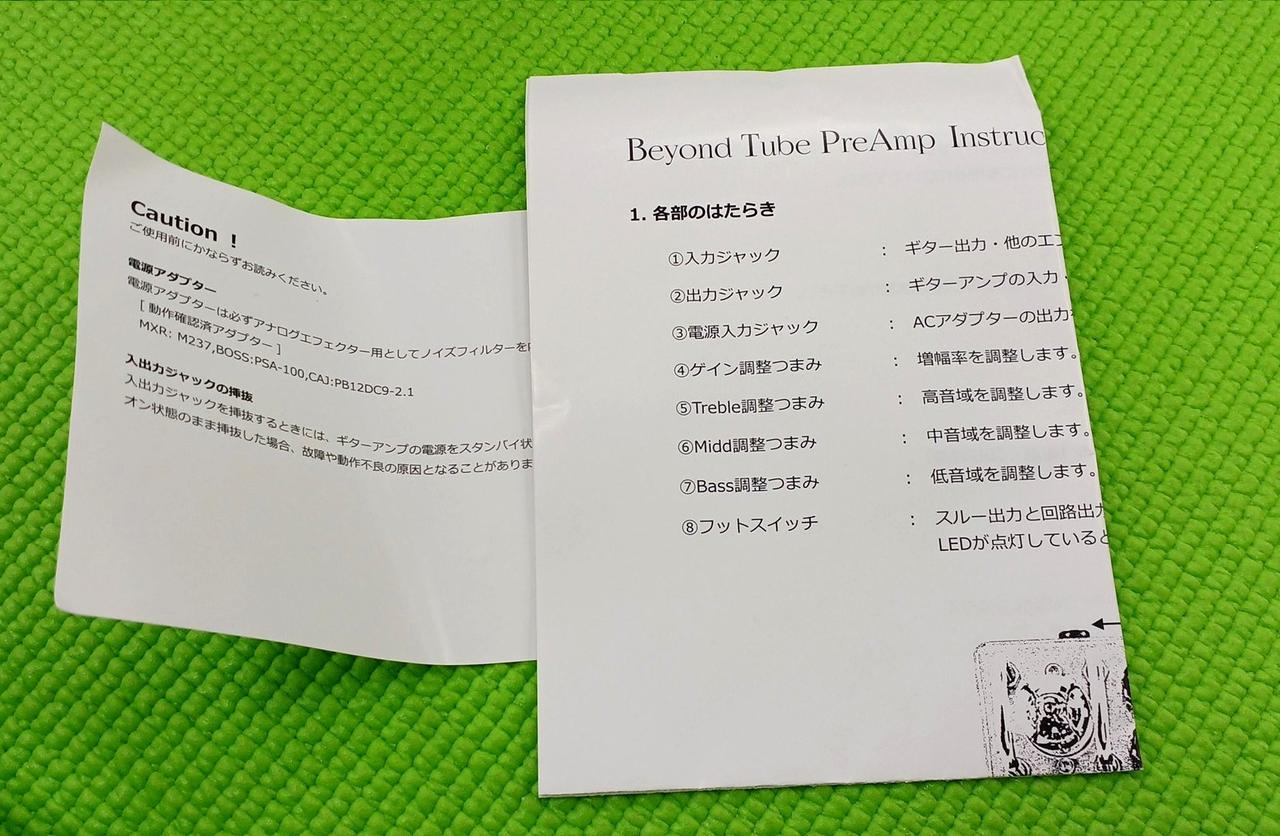 Caution !
ご使用前にかならずお読みください。
電源アダプター
電源アダプターは必ずアナログエフェクター用としてノイズフィルターを
[ 動作確認済アダプター ]
MXR: M237,BOSS:PSA-100,CAJ:PB12DC9-2.1
入出力ジャックの挿抜
入出力ジャックを挿抜するときには、ギターアンプの電源をスタンバイ状
オン状態のまま挿抜した場合、故障や動作不良の原因となることがありま
Beyond Tube PreAmp Instruc
1. 各部のはたらき
①入力ジャック : ギター出力・他のエフ
②出力ジャック : ギターアンプの入力・
③電源入力ジャック : ACアダプターの出力
④ゲイン調整つまみ : 増幅率を調整します。
⑤Treble調整つまみ : 高音域を調整します。
⑥Midd調整つまみ : 中音域を調整します。
⑦Bass調整つまみ : 低音域を調整します。
⑧フットスイッチ : スルー出力と回路出力
LEDが点灯していると